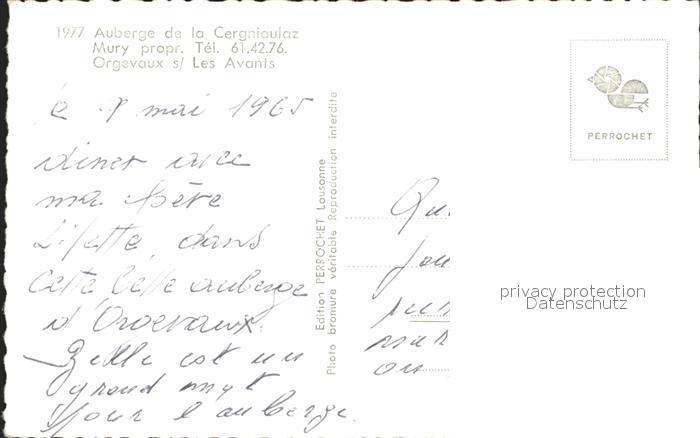 1977 Auberge de la Cergniaulaz
Mury propr. Tél. 61.42.76.
Orgevaux s/ Les Avants
le 8 mai 1965
dîner avec
ma
Lisette, dans
cette belle auberge
d'Orgevaux.
est un
grand
pour l'auberge.
Edition PERROCHET Lausanne
Photo bromure véritable Reproduction interdite
PERROCHET
Qu
jou
sur
ou
privacy protection
Datenschutz